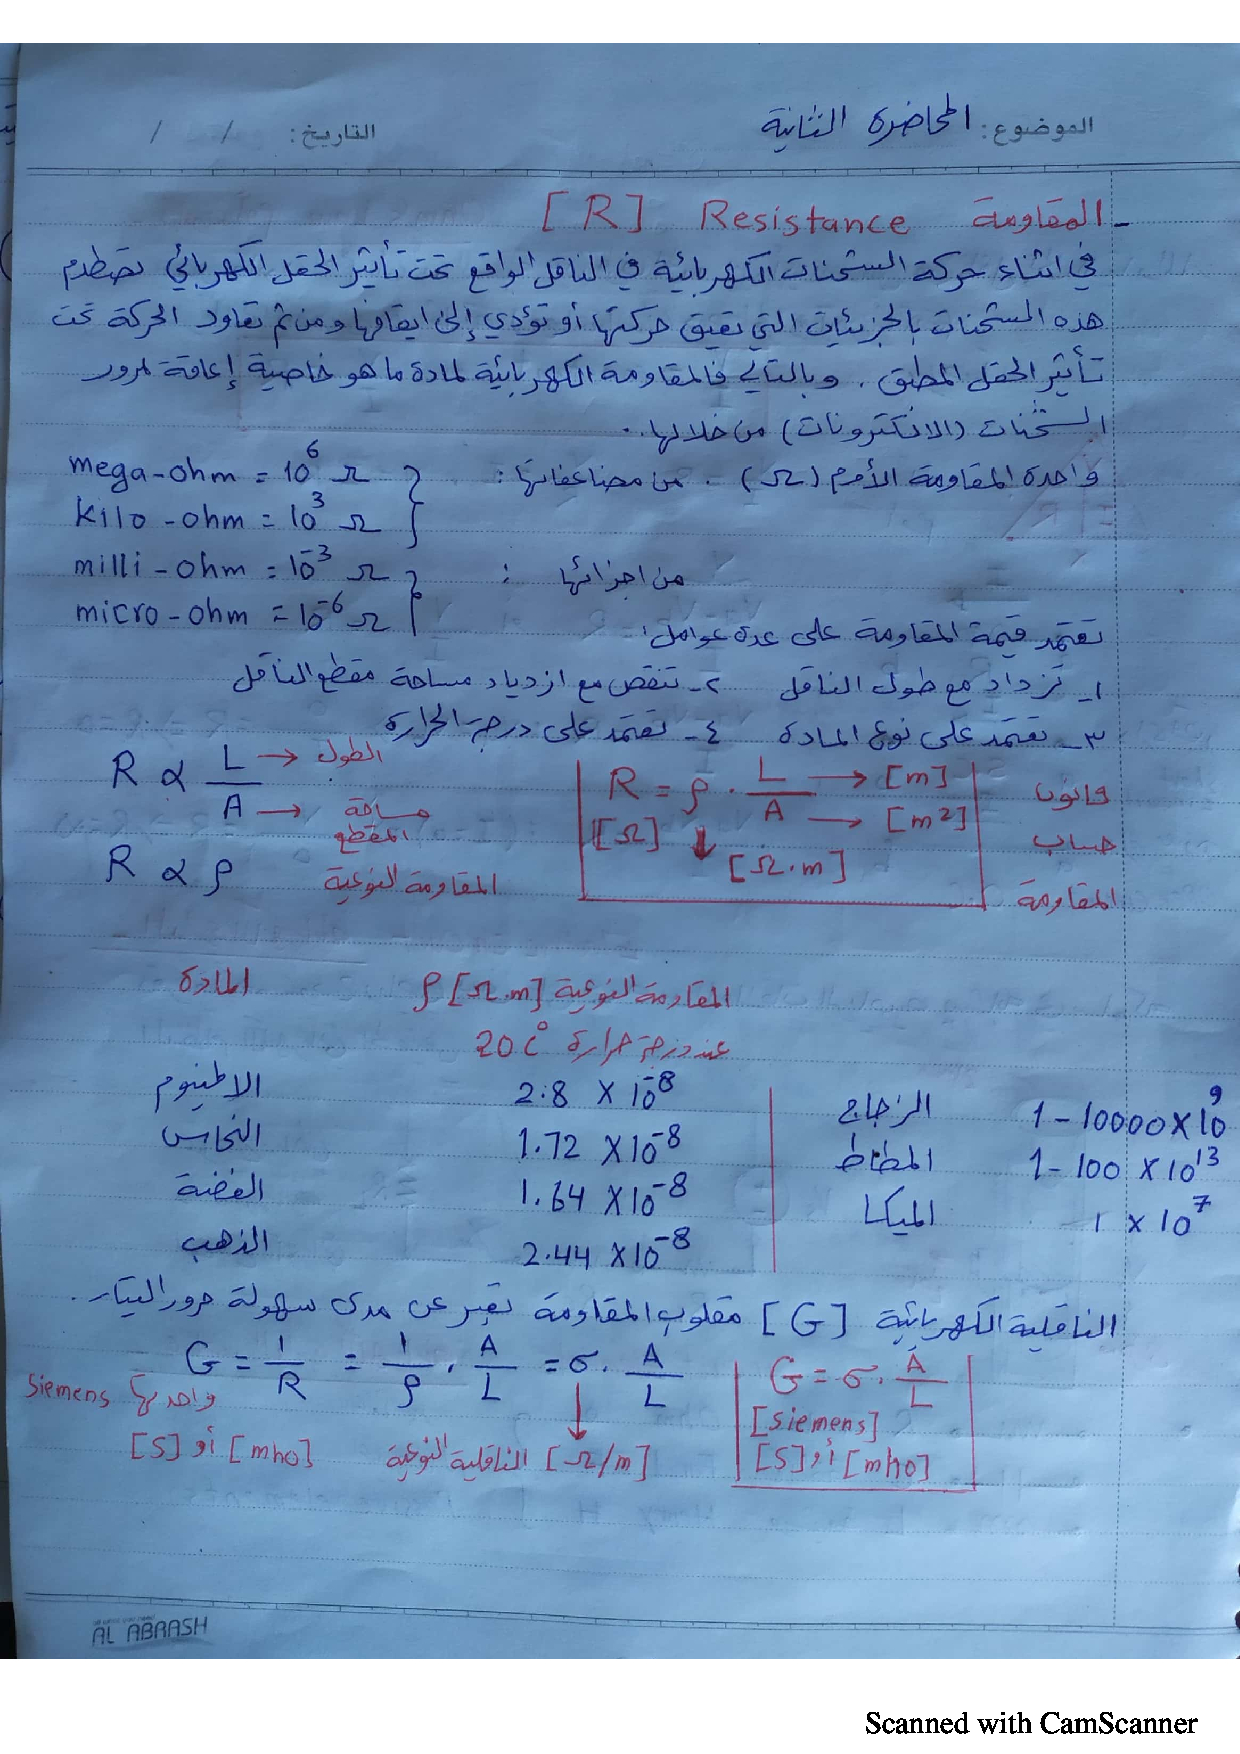 الموضوع: المحاضرة الثانية
التاريخ: / /
- المقاومة Resistance [R]
في اثناء حركة الشحنات الكهربائية في الناقل الواقع تحت تأثير الحقل الكهربائي تصطدم
هذه الشحنات بالجزيئات التي تعيق حركتها أو تؤدي إلى ايقافها ومن ثم تعاود الحركة تحت
تأثير الحقل المطبق . وبالتالي فالمقاومة الكهربائية لمادة ما هو خاصية إعاقة لمرور
الشحنات (الالكترونات) من خلالها .
واحدة المقاومة الأوم (Ω) . من مضاعفاتها :
mega-ohm = 10⁶ Ω
kilo-ohm = 10³ Ω
من اجزائها :
milli-ohm = 10⁻³ Ω
micro-ohm = 10⁻⁶ Ω
تعتمد قيمة المقاومة على عدة عوامل:
١- تزداد مع طول الناقل ٢- تنقص مع ازدياد مساحة مقطع الناقل
٣- تعتمد على نوع المادة ٤- تعتمد على درجة الحرارة
R ∝ L/A
L → الطول
A → مساحة المقطع
R ∝ ρ المقاومة النوعية
قانون حساب المقاومة
R = ρ · L/A → [m] → [m²]
[Ω] ↓ [Ω.m]
المادة المقاومة النوعية ρ [Ω.m]
عند درجة حرارة 20 c°
الالمنيوم 2.8 × 10⁻⁸
النحاس 1.72 × 10⁻⁸
الفضة 1.64 × 10⁻⁸
الذهب 2.44 × 10⁻⁸
الزجاج 1-10000 × 10⁹
المطاط 1-100 × 10¹³
الميكا 1 × 10⁷
الناقلية الكهربائية [G] مقلوب المقاومة تعبر عن مدى سهولة مرور التيار .
G = 1/R = 1/ρ · A/L = σ · A/L
واحدتها Siemens
[S] أو [mho]
↓ [Ω/m] الناقلية النوعية
G = σ · A/L
[siemens]
[S] أو [mho]
AL ABRASH
Scanned with CamScanner